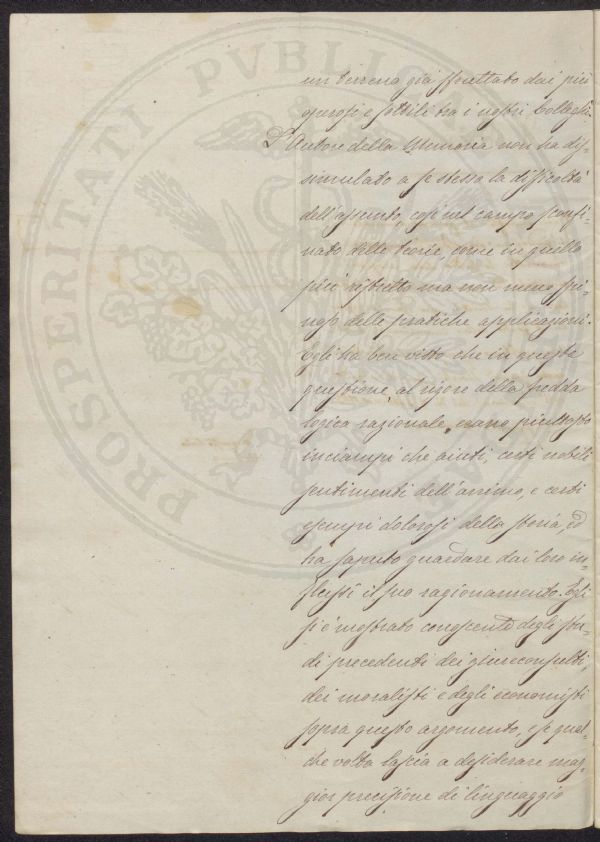 PROSPERITATI PVBLICAE
un terreno già sfruttato dai più
operosi e sottili tra i nostri Colleghi.
L'Autore della Memoria non ha dis-
simulato a se stesso la difficoltà
dell'assunto, così nel campo sconfi-
nato delle teorie, come in quello
più ristretto ma non meno spi-
noso delle pratiche applicazioni.
Egli ha ben visto che in questa
questione, al rigore della fredda
logica razionale, erano piuttosto
inciampi che aiuti, certi nobili
sentimenti dell'animo, e certi
esempi dolorosi della storia, ed
ha saputo guardare dai loro in-
flussi il suo ragionamento. Egli
si è mostrato conoscente degli stu-
di precedenti dei giureconsulti,
dei moralisti e degli economisti
sopra questo argomento, e se qual-
che volta lascia a desiderare mag-
gior precisione di linguaggio